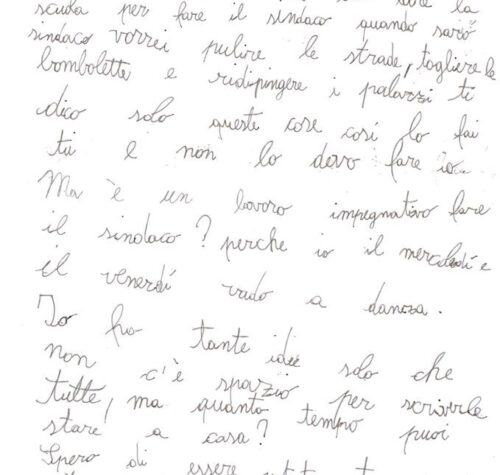 scuola per fare il sindaco quando sarò
sindaco vorrei pulire le strade, togliere le
bombolette e ridipingere i palazzi ti
dico solo queste cose così lo fai
tu e non lo devo fare io...
Ma è un lavoro impegnativo fare
il sindaco? perche io il mercoledì e
il venerdí vado a danza.
Io ho tante idee solo che
non c'è spazio per scriverle
tutte, ma quanto tempo puoi
stare a casa?
Spero di essere